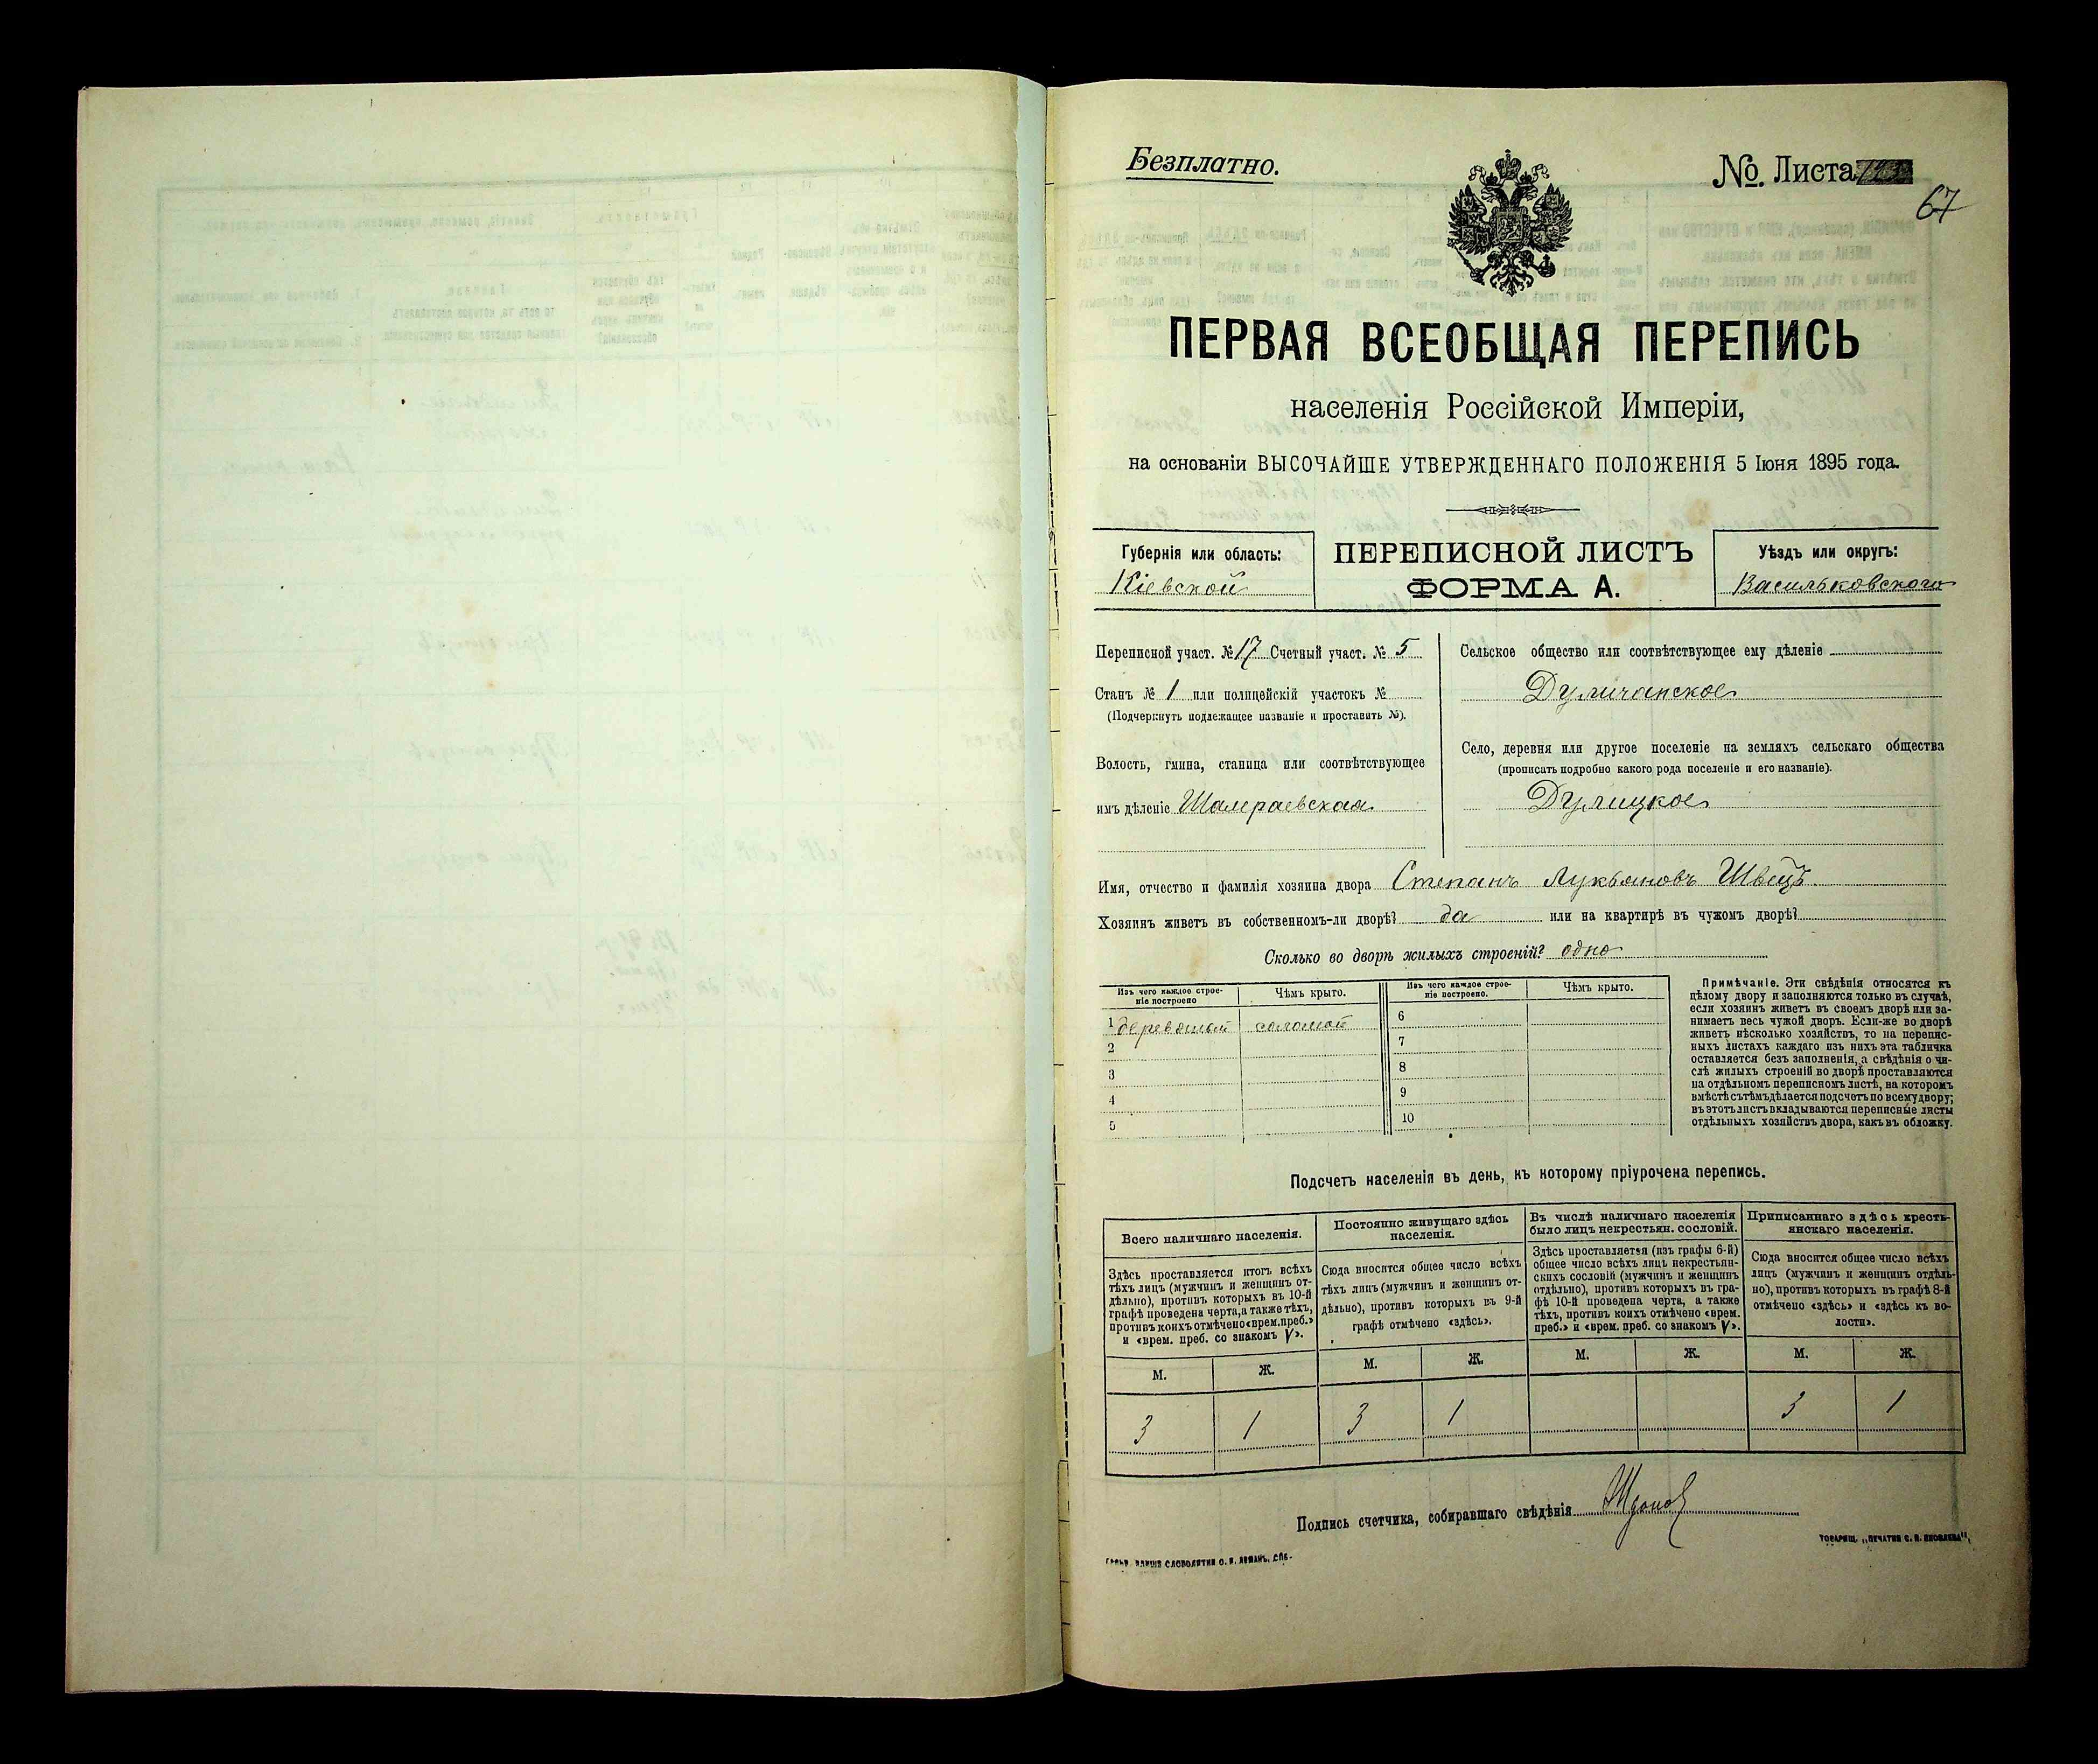 Безплатно.
№. Листа
67
ПЕРВАЯ ВСЕОБЩАЯ ПЕРЕПИСЬ
населенія Россійской Имперіи,
на основаніи ВЫСОЧАЙШЕ УТВЕРЖДЕННАГО ПОЛОЖЕНІЯ 5 Іюня 1895 года.
Губернія или область:
Кіевской
ПЕРЕПИСНОЙ ЛИСТЪ
ФОРМА А.
Уѣздъ или округъ:
Васильковского
Переписной участ. № 17 Счетный участ. № 5
Станъ № 1 или полицейскій участокъ №
(Подчеркнуть подлежащее названіе и проставить №).
Волость, гмина, станица или соотвѣтствующее
имъ дѣленіе Шамраевская
Сельское общество или соотвѣтствующее ему дѣленіе
Дуличанское
Село, деревня или другое поселеніе на земляхъ сельскаго общества
(прописать подробно какого рода поселеніе и его названіе).
Дулицкое
Имя, отчество и фамилія хозяина двора Степанъ Лукьяновъ Швецъ
Хозяинъ живетъ въ собственномъ-ли дворѣ? да или на квартирѣ въ чужомъ дворѣ?
Сколько во дворѣ жилыхъ строеній? одно
Изъ чего каждое строе-
ніе построено
Чѣмъ крыто.
Изъ чего каждое строе-
ніе построено.
Чѣмъ крыто.
1 деревяный соломой
2
3
4
5
6
7
8
9
10
Примѣчаніе. Эти свѣдѣнія относятся къ
цѣлому двору и заполняются только въ случаѣ,
если хозяинъ живетъ въ своемъ дворѣ или за-
нимаетъ весь чужой дворъ. Если-же во дворѣ
живетъ нѣсколько хозяйствъ, то на перепис-
ныхъ листахъ каждаго изъ нихъ эта табличка
оставляется безъ заполненія, а свѣдѣнія о чи-
слѣ жилыхъ строеній во дворѣ проставляются
на отдѣльномъ переписномъ листѣ, на которомъ
вмѣстѣ съ тѣмъ дѣлается подсчетъ по всему двору;
въ этотъ листъ вкладываются переписные листы
отдѣльныхъ хозяйствъ двора, какъ въ обложку.
Подсчетъ населенія въ день, къ которому пріурочена перепись.
Всего наличнаго населенія.
Здѣсь проставляется итогъ всѣхъ
тѣхъ лицъ (мужчинъ и женщинъ от-
дѣльно), противъ которыхъ въ 10-й
графѣ проведена черта, а также тѣхъ,
противъ коихъ отмѣчено «врем. преб.»
и «врем. преб. со знакомъ V».
Постоянно живущаго здѣсь
населенія.
Сюда вносится общее число всѣхъ
тѣхъ лицъ (мужчинъ и женщинъ от-
дѣльно), противъ которыхъ въ 9-й
графѣ отмѣчено «здѣсь».
Въ числѣ наличнаго населенія
было лицъ некрестьян. сословій.
Здѣсь проставляется (изъ графы 6-й)
общее число всѣхъ лицъ некрестьян-
скихъ сословій (мужчинъ и женщинъ
отдѣльно), противъ которыхъ въ гра-
фѣ 10-й проведена черта, а также
тѣхъ, противъ коихъ отмѣчено «врем.
преб.» и «врем. преб. со знакомъ V».
Приписаннаго здѣсь кресть-
янскаго населенія.
Сюда вносится общее число всѣхъ
лицъ (мужчинъ и женщинъ отдѣль-
но), противъ которыхъ въ графѣ 8-й
отмѣчено «здѣсь» и «здѣсь къ во-
лости».
М. Ж. М. Ж. М. Ж. М. Ж.
3 1 3 1 3 1
Подпись счетчика, собиравшаго свѣдѣнія
ТОВАРИЩ. „ПЕЧАТНЯ С. П. ЯКОВЛЕВА",